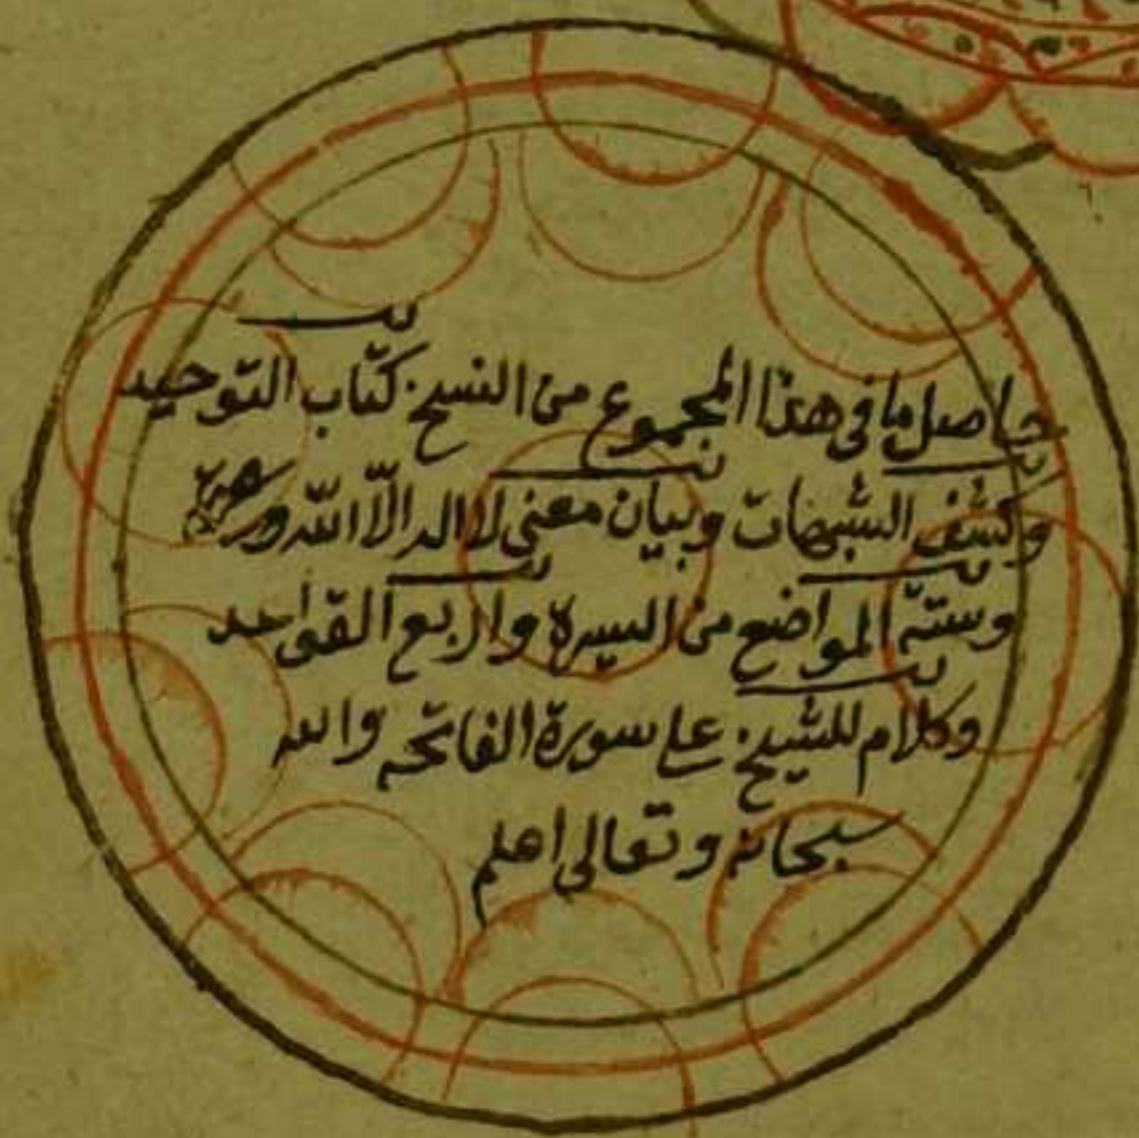 حاصل ما في هذا المجموع من النسخ كتاب التوحيد
وكشف الشبهات وبيان معنى لا اله الّا الله
وستة المواضع من السيرة واربع القواعد
وكلام للشيخ على سورة الفاتحه والله
سبحانه وتعالى اعلم